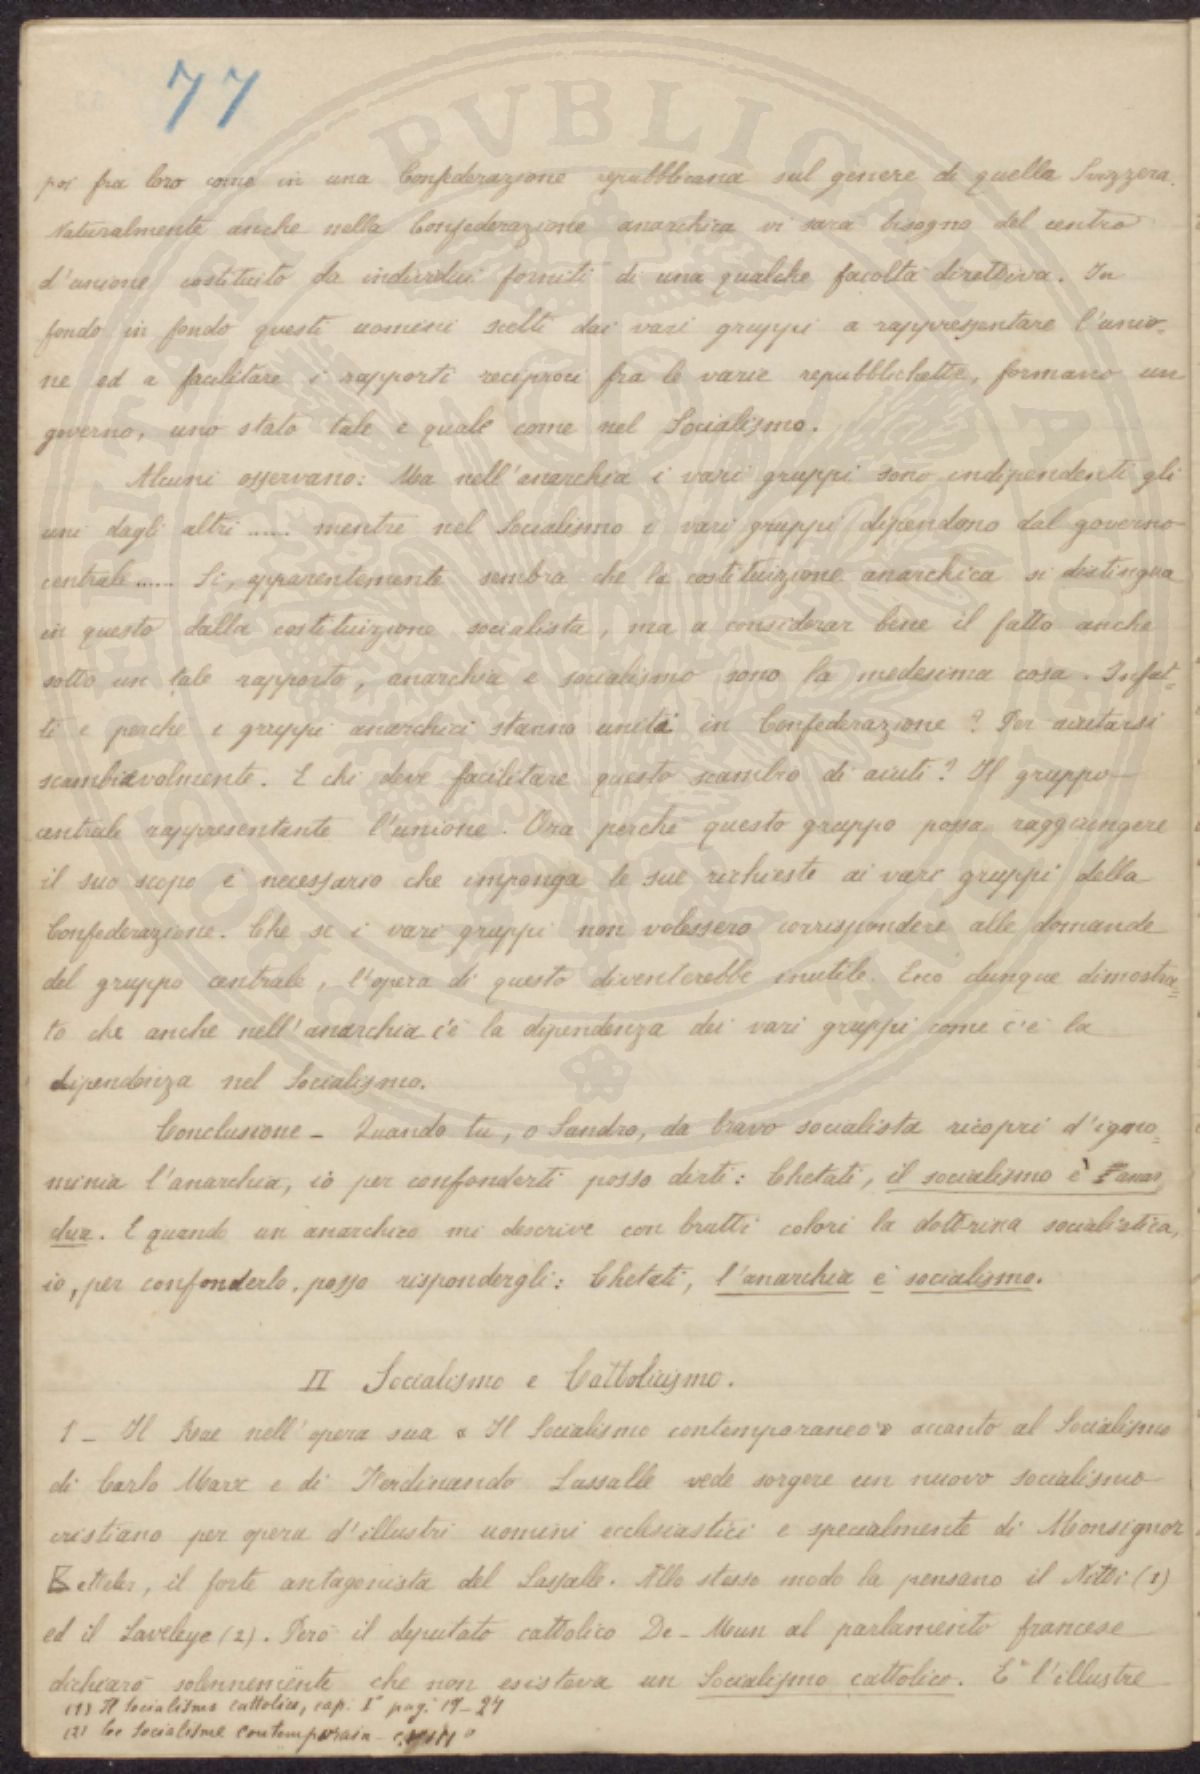 77
poi fra loro come in una Confederazione repubblicana sul genere di quella Svizzera.
Naturalmente anche nella Confederazione anarchica vi sarà bisogno del centro
d'unione costituito da individui forniti di una qualche facoltà direttiva. In
fondo in fondo questi uomini scelti dai vari gruppi a rappresentare l'unio-
ne ed a facilitare i rapporti reciproci fra le varie repubblichette, formano un
governo, uno stato tale e quale come nel Socialismo.
Alcuni osservano: Ma nell'anarchia i vari gruppi sono indipendenti gli
uni dagli altri ..... mentre nel Socialismo i vari gruppi dipendono dal governo
centrale ..... Si, apparentemente sembra che la costituizione anarchica si distingua
in questo dalla costituizione socialista, ma a considerar bene il fatto anche
sotto un tale rapporto, anarchia e socialismo sono la medesima cosa. Infat-
ti e perchè i gruppi anarchici stanno uniti in Confederazione? Per aiutarsi
scambievolmente. E chi deve facilitare questo scambio di aiuti? Il gruppo
centrale rappresentante l'unione. Ora perchè questo gruppo possa raggiungere
il suo scopo è necessario che imponga le sue richieste ai vari gruppi della
Confederazione. Che se i vari gruppi non volessero corrispondere alle domande
del gruppo centrale, l'opera di questo diventerebbe inutile. Ecco dunque dimostra-
to che anche nell'anarchia c'è la dipendenza dei vari gruppi come c'è la
dipendenza nel Socialismo.
Conclusione - Quando tu, o Sandro, da bravo socialista ricopri d'igno-
minia l'anarchia, io per confonderti posso dirti: Chetati, il socialismo è anar
chia. E quando un anarchico mi descrive con brutti colori la dottrina socialistica,
io, per confonderlo, posso rispondergli: Chetati, l'anarchia è socialismo.
II Socialismo e Cattolicismo.
1 - Il Rae nell'opera sua « Il Socialismo contemporaneo » accanto al Socialismo
di Carlo Marx e di Ferdinando Lassalle vede sorgere un nuovo socialismo
cristiano per opera d'illustri uomini ecclesiastici e specialmente di Monsignor
Ketteler, il forte antagonista del Lassalle. Allo stesso modo la pensano il Nitti (1)
ed il Laveleye (2). Però il deputato cattolico De-Mun al parlamento francese
dichiarò solennemente che non esisteva un Socialismo cattolico. E l'illustre
(1) Il Socialismo cattolico, cap. I° pag. 19-24
(2) Le Socialisme contemporain -